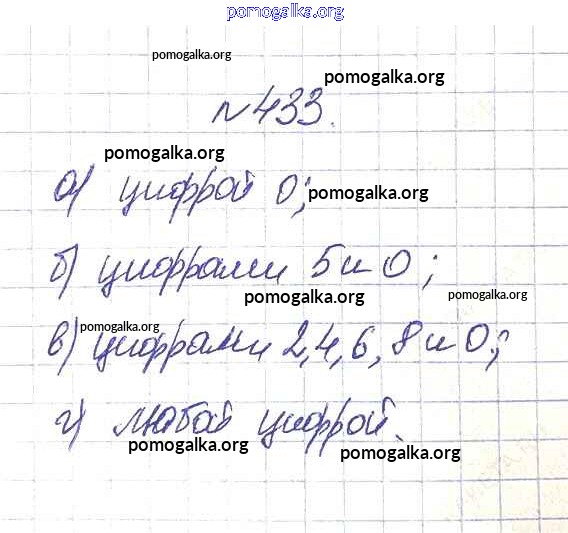 pomogalka.org
pomogalka.org
pomogalka.org
№433.
pomogalka.org
а) цифрой 0;
pomogalka.org
б) цифрами 5 и 0;
pomogalka.org
pomogalka.org
pomogalka.org
в) цифрами 2,4,6,8 и 0;
г) любой цифрой.
pomogalka.org
pomogalka.org